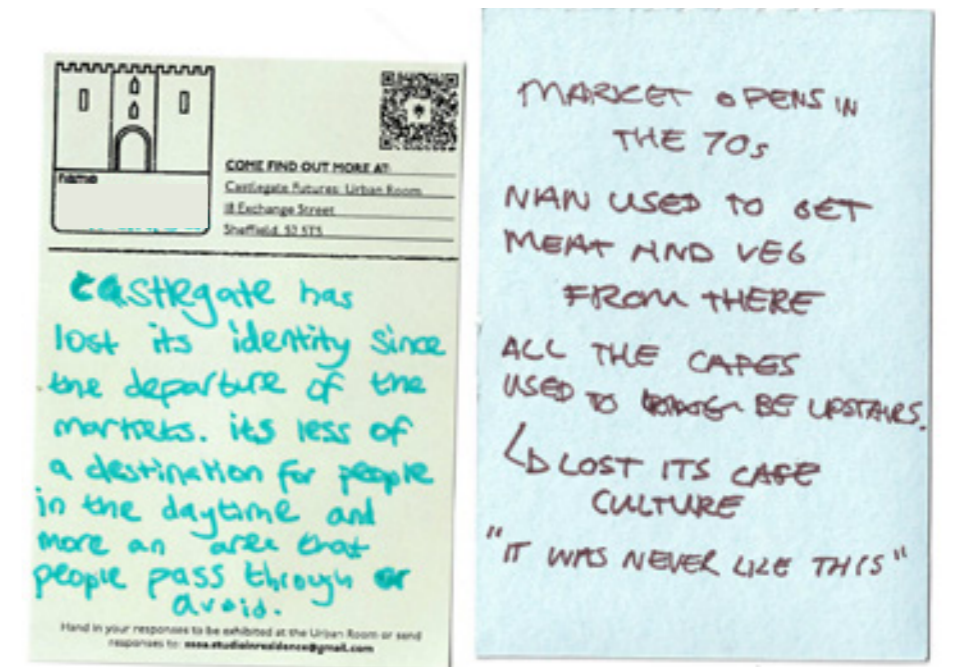 name
COME FIND OUT MORE AT:
Castlegate Futures: Urban Room
18 Exchange Street
Sheffield, S2 5TS
Castlegate has
lost its identity since
the departure of the
markets. its less of
a destination for people
in the daytime and
more an area that
people pass through or
avoid.
Hand in your responses to be exhibited at the Urban Room or send
responses to: ssoa.studioinresidence@gmail.com
MARKET OPENS IN
THE 70s
NAN USED TO GET
MEAT AND VEG
FROM THERE
ALL THE CAFES
USED TO BE UPSTAIRS.
LOST ITS CAFE
CULTURE
"IT WAS NEVER LIKE THIS"